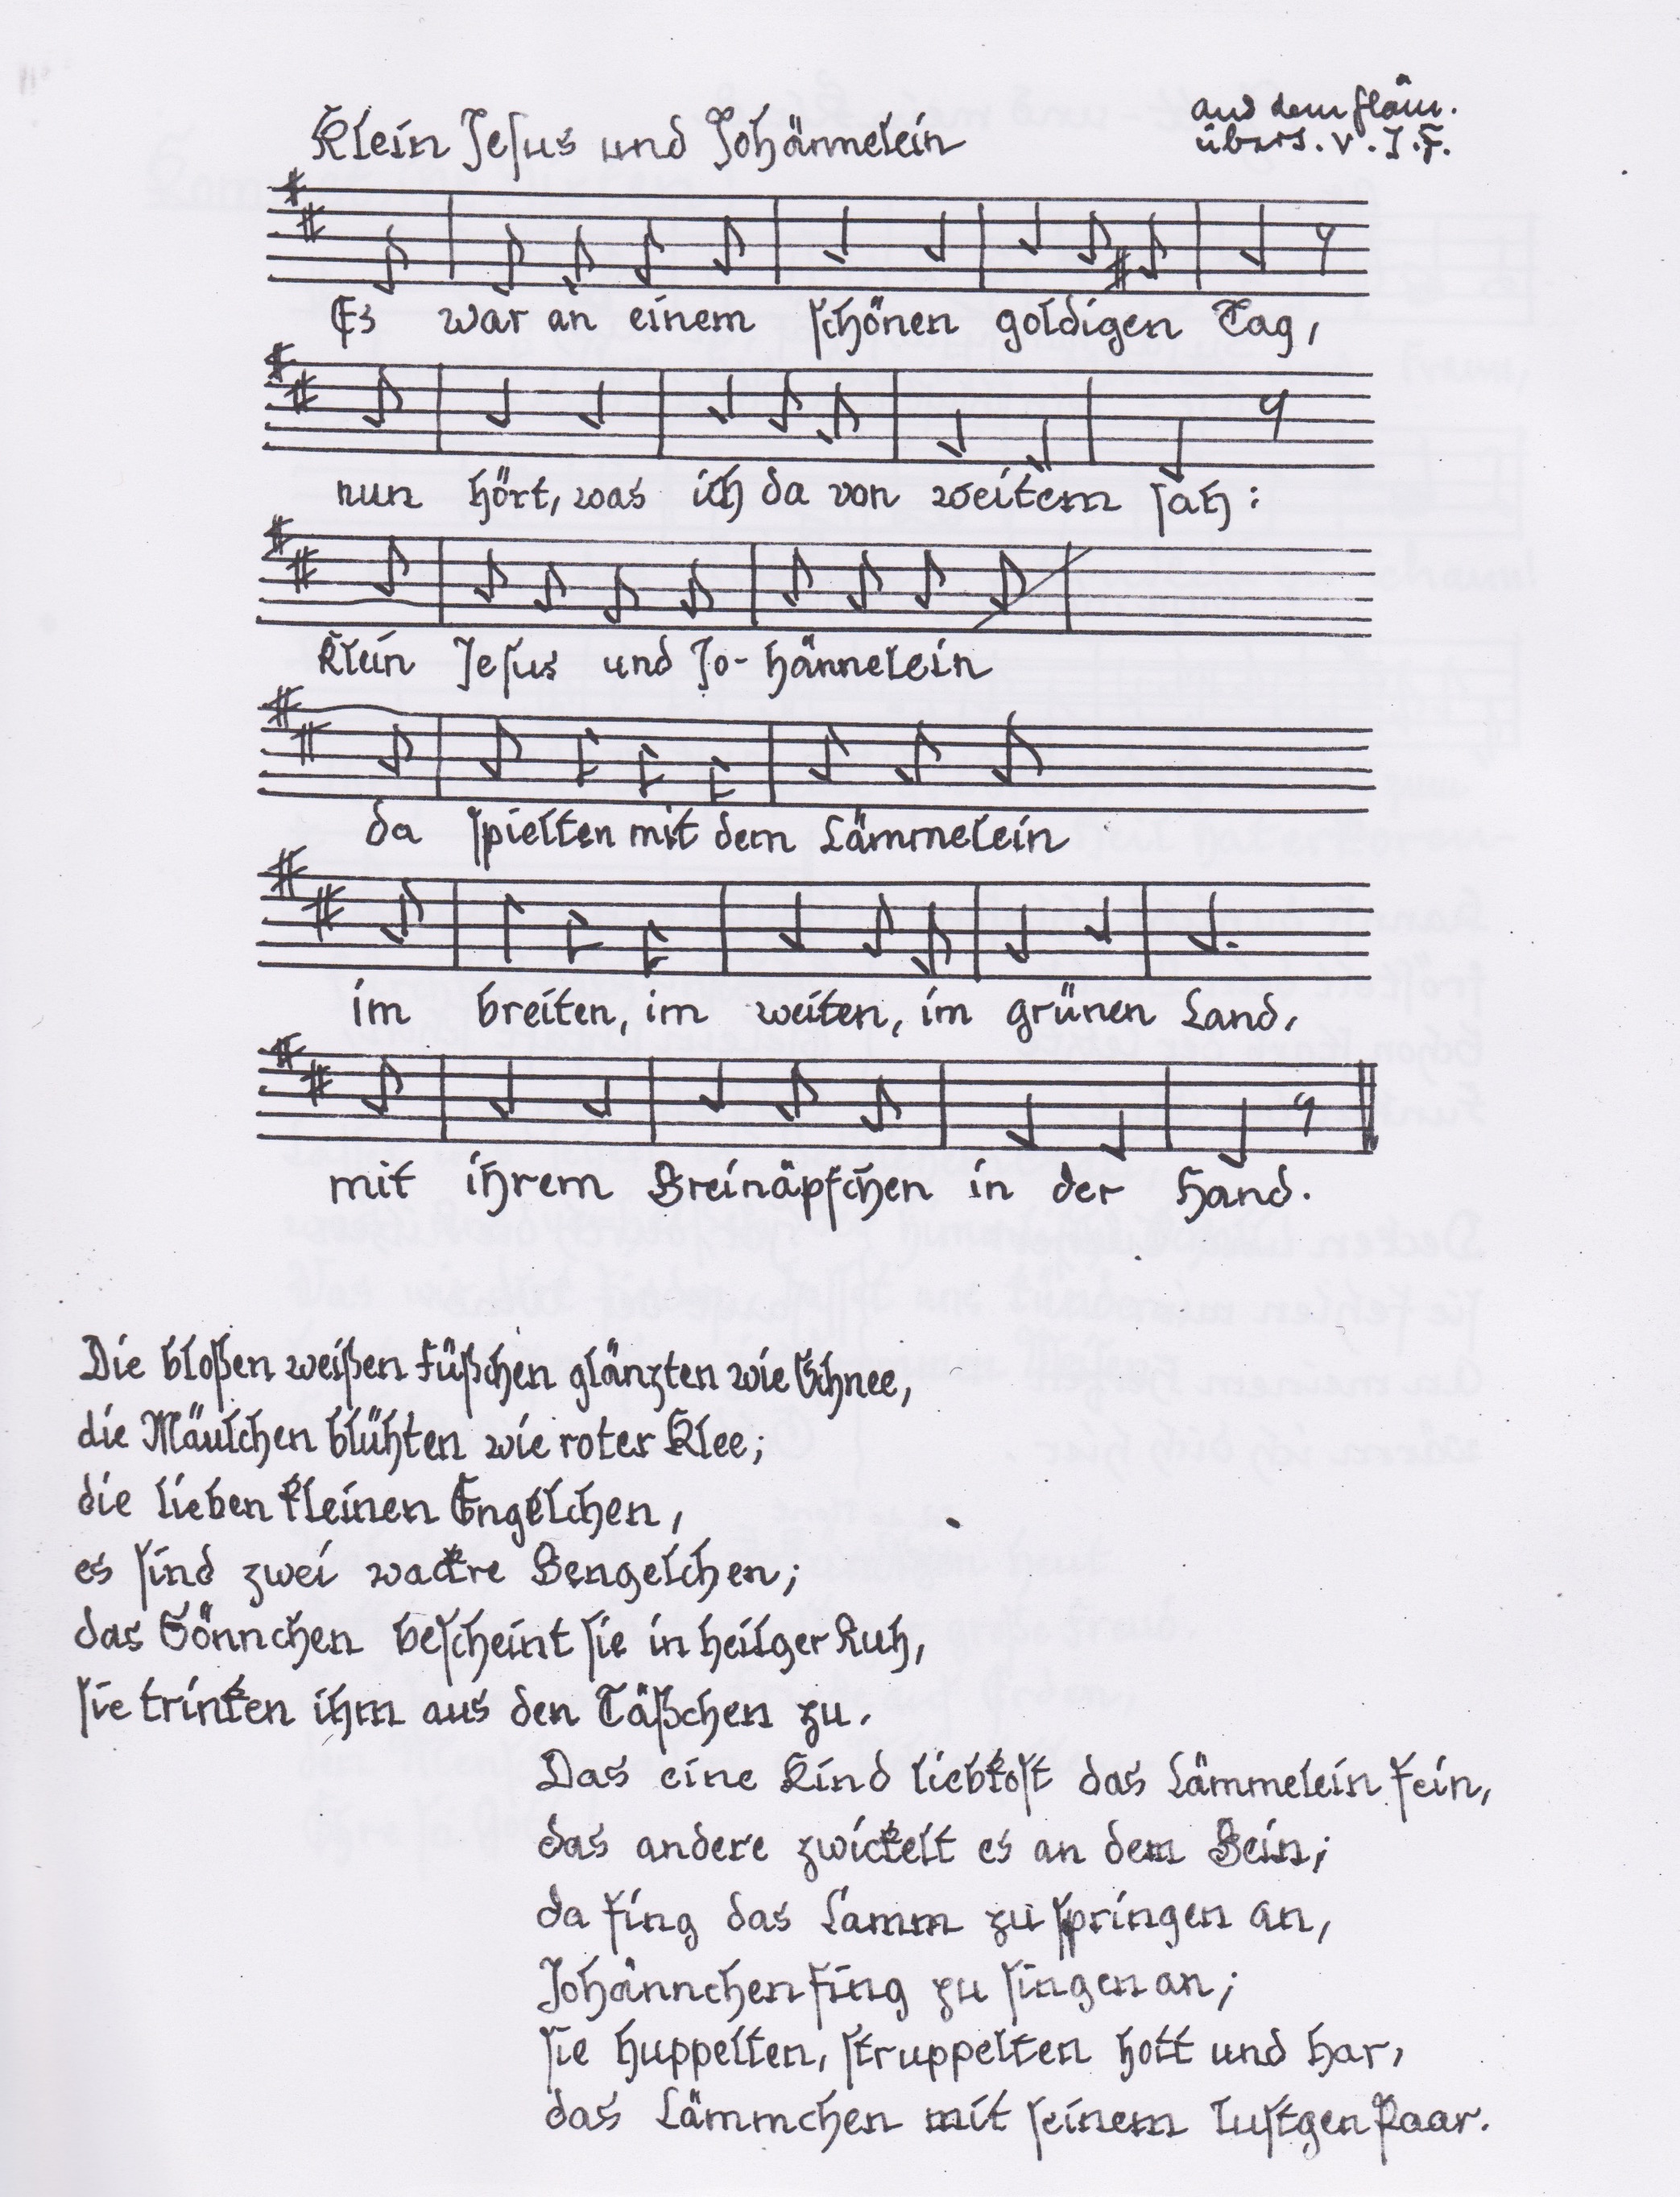 Klein Jesus und Johännelein
aus dem fläm.
übers. v. J.F.
Es war an einem schönen goldigen Tag,
nun hört, was ich da von weitem sah:
Klein Jesus und Jo-hännelein
da spielten mit dem Lämmelein
im breiten, im weiten, im grünen Land,
mit ihrem Breinäpfchen in der Hand.
Die bloßen weißen Füßchen glänzten wie Schnee,
die Mäulchen blühten wie roter Klee;
die lieben kleinen Engelchen,
es sind zwei wackre Bengelchen;
das Sönnchen bescheint sie in heilger Ruh,
sie trinken ihm aus den Täßchen zu.
Das eine Kind liebkost das Lämmelein fein,
das andere zwickelt es an dem Bein;
da fing das Lamm zu springen an,
Johännchen fing zu singen an;
sie huppelten, struppelten hott und har,
das Lämmchen mit seinem lustgen Paar.